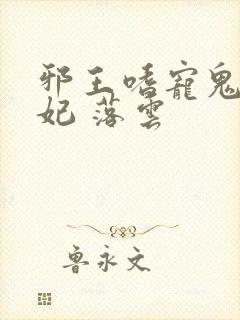 邪王嗜寵鬼
妃 落雲
魯永文